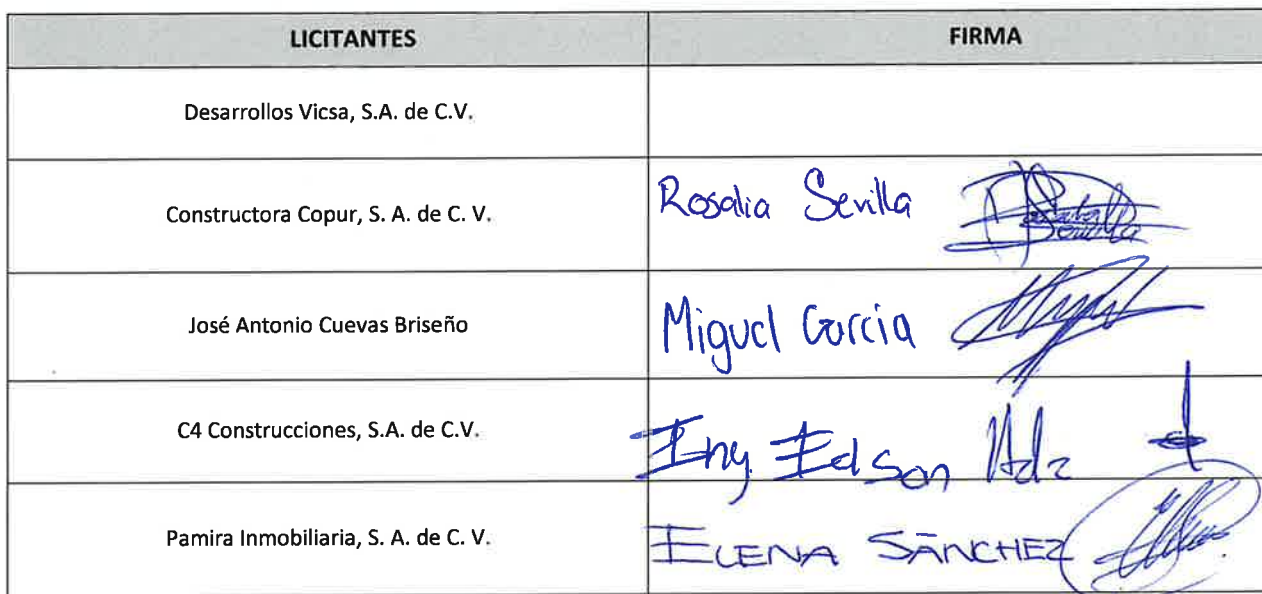 LICITANTES FIRMA
Desarrollos Vicsa, S.A. de C.V.
Constructora Copur, S. A. de C. V. Rosalia Sevilla
José Antonio Cuevas Briseño Miguel García
C4 Construcciones, S.A. de C.V. Ing. Edson Hdz
Pamira Inmobiliaria, S. A. de C. V. ELENA SÁNCHEZ